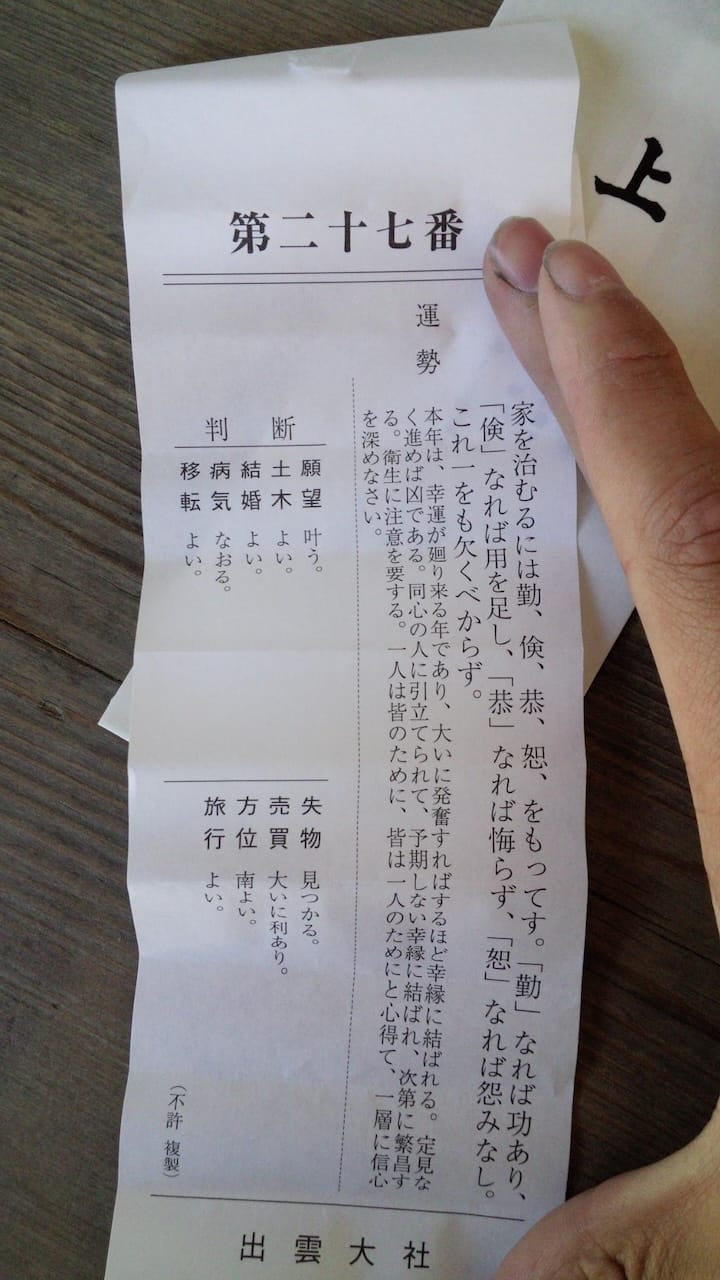 上
第二十七番
運勢
家を治むるには勤、倹、恭、恕、をもってす。「勤」なれば功あり、
「倹」なれば用を足し、「恭」なれば悔らず、「恕」なれば怨みなし。
これ一をも欠くべからず。
本年は、幸運が廻り来る年であり、大いに発奮すればするほど幸縁に結ばれる。定見な
く進めば凶である。同心の人に引立てられて、予期しない幸縁に結ばれ、次第に繁昌す
る。衛生に注意を要する。一人は皆のために、皆は一人のためにと心得て、一層に信心
を深めなさい。
判断
願望 叶う。
土木 よい。
結婚 よい。
病気 なおる。
移転 よい。
失物 見つかる。
売買 大いに利あり。
方位 南よい。
旅行 よい。
（不許 複製）
出雲大社